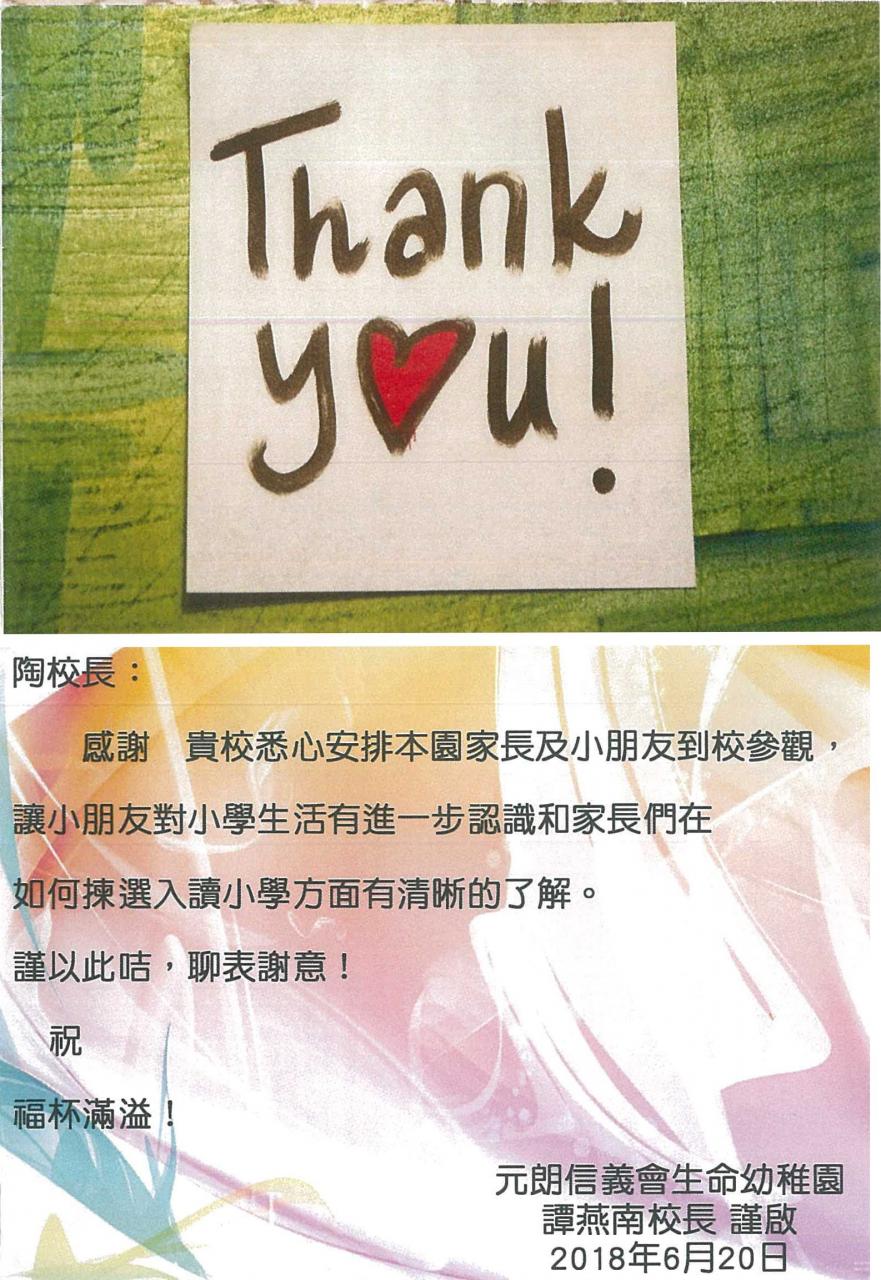 Thank
you!
陶校長：
感謝　貴校悉心安排本園家長及小朋友到校參觀，
讓小朋友對小學生活有進一步認識和家長們在
如何揀選入讀小學方面有清晰的了解。
謹以此咭，聊表謝意！
祝
福杯滿溢！
元朗信義會生命幼稚園
譚燕南校長 謹啟
2018年6月20日